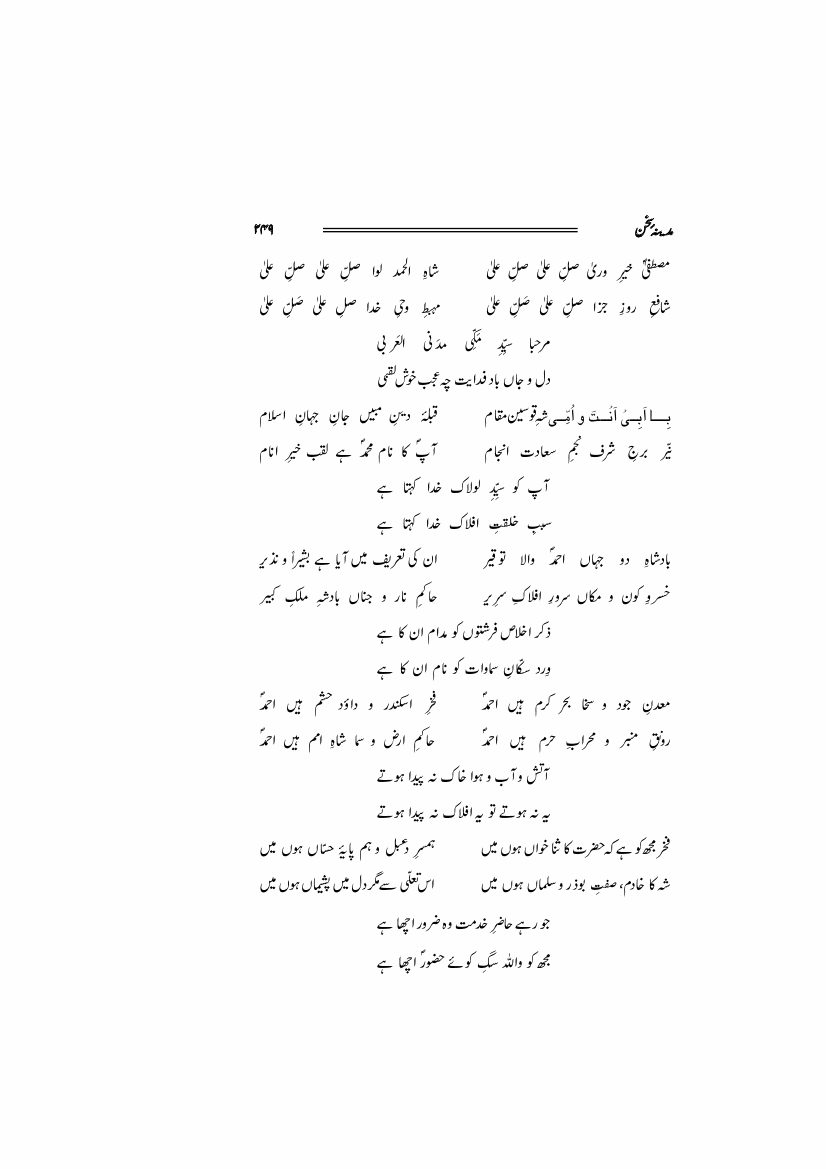 مدینۂ سخن ۲۴۹
مصطفیٰؐ خیرِ وریٰ صلِّ علیٰ صلِّ علیٰ شاہِ الحمد لوا صلِّ علیٰ صلِّ علیٰ
شافعِ روزِ جزا صلِّ علیٰ صَلِّ علیٰ مہبطِ وحیِ خدا صلِ علیٰ صَلِّ علیٰ
مرحبا سیّدِ مَکّی مدَنی العَربی
دل و جاں باد فدایت چہ عجب خوش لقبی
بِاَبِیْ اَنْتَ و اُمِّی شہِ قوسین مقام قبلۂ دینِ مبیں جانِ جہانِ اسلام
نیّرِ برجِ شرف نجمِ سعادت انجام آپؐ کا نام محمدؐ ہے لقب خیرِ انام
آپ کو سیّدِ لولاک خدا کہتا ہے
سببِ خلقتِ افلاک خدا کہتا ہے
بادشاہِ دو جہاں احمدؐ والا توقیر ان کی تعریف میں آیا ہے بشیراً و نذیر
خسروِ کون و مکاں سرورِ افلاکِ سریر حاکمِ نار و جناں بادشہِ ملکِ کبیر
ذکر اخلاص فرشتوں کو مدام ان کا ہے
وِرد سکّانِ سماوات کو نام ان کا ہے
معدنِ جود و سخا بحر کرم ہیں احمدؐ فخرِ اسکندر و داؤد حشم ہیں احمدؐ
رونقِ منبر و محرابِ حرم ہیں احمدؐ حاکمِ ارض و سما شاہِ امم ہیں احمدؐ
آتش و آب و ہوا خاک نہ پیدا ہوتے
یہ نہ ہوتے تو یہ افلاک نہ پیدا ہوتے
فخر مجھ کو ہے کہ حضرت کا ثنا خواں ہوں میں ہمسرِ دعبل و ہم پایۂ حسّاں ہوں میں
شہ کا خادم، صفتِ بوذر و سلماں ہوں میں اس تعلّی سے مگر دل میں پشیماں ہوں میں
جو رہے حاضرِ خدمت وہ ضرور اچھا ہے
مجھ کو واللہ سگِ کوئے حضورؐ اچھا ہے